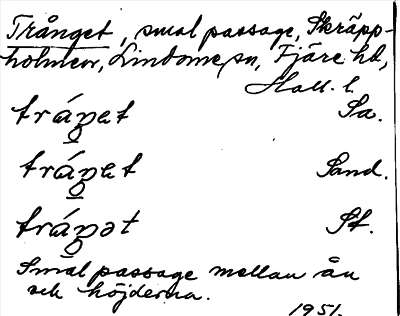 Trånget, smal passage, Skräpp-
holmen, Lindome sn, Fjäre hd,
Hall. l.
tráŋət Sa.
tráŋət Sand.
tráŋət St.
Smal passage mellan ån
och höjderna.
1951.